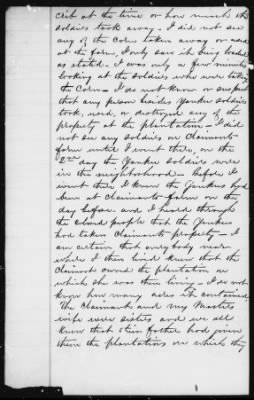 crib at the time or how much the
soldiers took away. I did not see
any of the Corn taken away or used
at the farm, I only saw it being loaded
as stated. I was only a few minutes
looking at the soldiers who were taking
the Corn — I do not know or suspect
that any person besides Yankee soldiers
took, used, or destroyed any of the
property at the plantation — I did
not see any soldiers on Claimants
farm until I went there, on the
2nd day the Yankee soldiers were
in the neighborhood — before I
went there I knew the Yankees had
been at Claimants farm on the
day before and I heard through
the colored people that the Yankees
had taken Claimants property — I
am certain that everybody near
where I then lived knew that the
Claimant owned the plantation on
which she was then living — I do not
know how many acres it contained
The Claimant and my Masters
wife were sisters and we all
knew that their father had given
them the plantations on which they